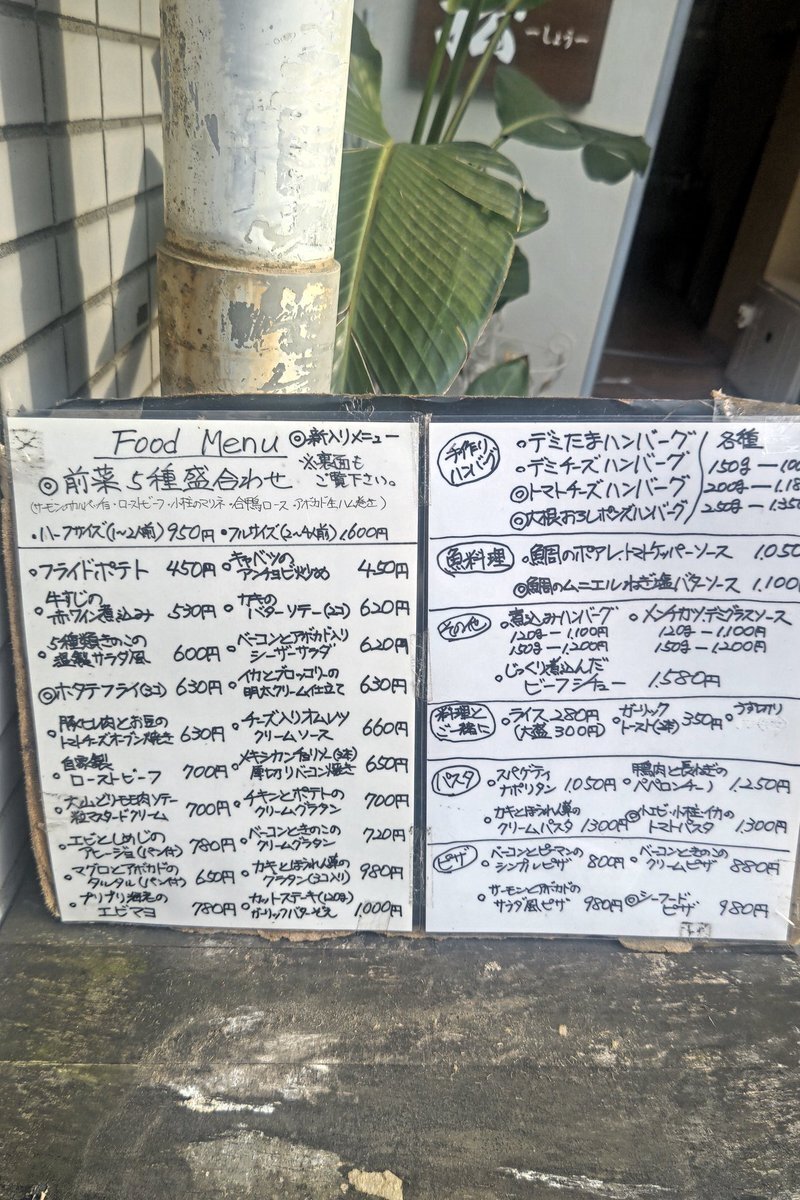 ーしょうー
Food Menu ◎新入りメニュー
◎前菜5種盛合わせ ※裏面もご覧下さい。
・ハーフサイズ(1〜2人前) 950円 ・フルサイズ(2〜4人前) 1,600円
・フライドポテト 450円
・キャベツのアンチョビ炒め 450円
・牛すじの赤ワイン煮込み 530円
・カキのバターソテー(2コ) 620円
・5種類きのこの塩麹サラダ風 600円
・ベーコンとアボカド入りシーザーサラダ 620円
◎ホタテフライ(3コ) 630円
・イカとブロッコリーの明太クリーム仕立て 630円
・豚ヒレ肉とお豆のトマトチーズオーブン焼き 630円
・チーズ入りオムレツクリームソース 660円
・自家製ローストビーフ 700円
・メキシカンチョリソー(3本)厚切りベーコン焼き 650円
モモ肉ソテー粒マスタードクリーム 700円
・チキンとポテトのクリームグラタン 700円
・エビとしめじのアヒージョ(パン付) 780円
・ベーコンときのこのクリームグラタン 720円
・マグロとアボカドのタルタル(パン付) 650円
・カキとほうれん草のグラタン(3コ入り) 980円
・プリプリ海老のエビマヨ 780円
・カットステーキ(120g)ガーリックバターぞえ 1,000円
手作りハンバーグ
・デミたまハンバーグ
・デミチーズハンバーグ
◎トマトチーズハンバーグ
◎大根おろしポン酢ハンバーグ
各種
150g ー
200g ー
250g ー
魚料理
・鯛のポアレ、トマトケッパーソース 1,050
◎鯛のムニエルねぎ塩バターソース 1,100
その他
・煮込みハンバーグ
120g ー 1,100円
150g ー 1,200円
・メンチカツ、デミグラスソース
120g ー 1,100円
150g ー 1,200円
・じっくり煮込んだビーフシチュー 1,580円
料理とご一緒に
・ライス 280円
(大盛 300円)
・ガーリックトースト(3本) 350円
パスタ
・スパゲティナポリタン 1,050円
・鴨肉と長ねぎのペペロンチーノ 1,250円
・カキとほうれん草のクリームパスタ 1300円
◎小エビ・小柱・イカのトマトパスタ 1,300円
ピザ
・ベーコンとピーマンのシンプルピザ 800円
・ベーコンときのこのクリームピザ 880円
・サーモンとアボカドのサラダ風ピザ 980円
◎シーフードピザ 980円